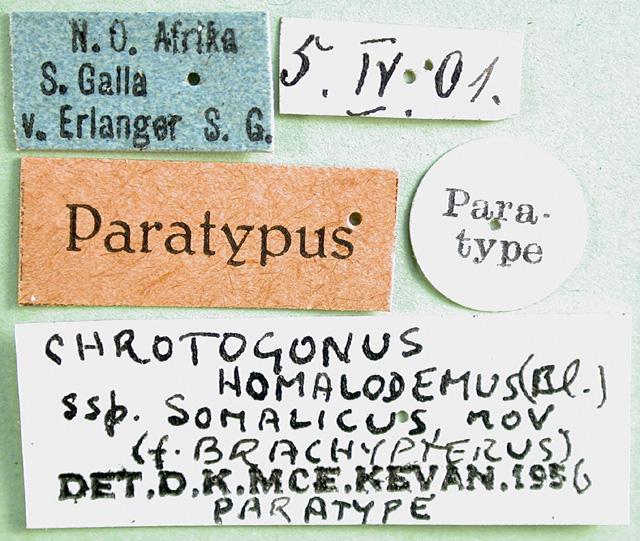 N. O. Afrika
S. Galla
v. Erlanger S. G.
5. IV. 01.
Paratypus
Para-
type
CHROTOGONUS
HOMALODEMUS (Bl.)
ssp. SOMALICUS, NOV.
(f. BRACHYPTERUS)
DET. D. K. MCE. KEVAN. 1956
PARATYPE